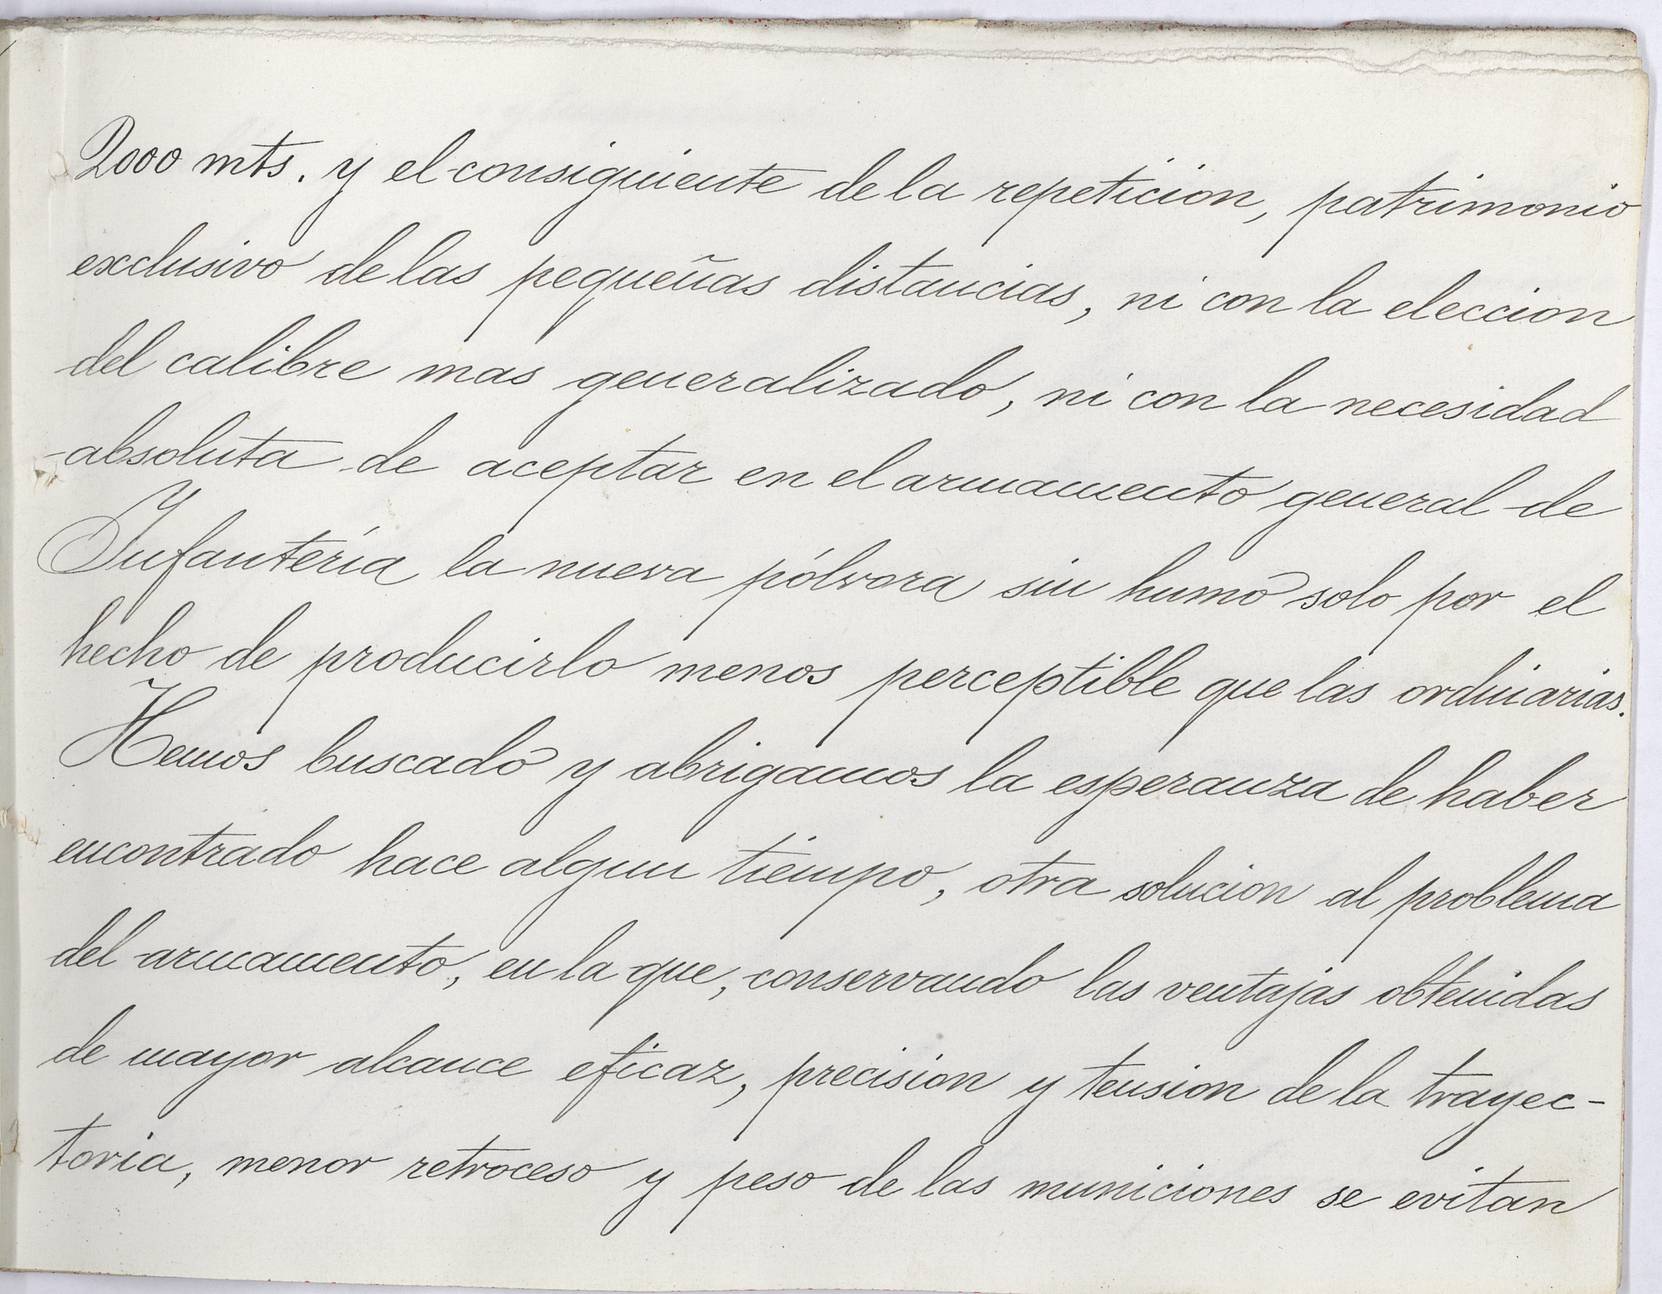 2000 mts. y el consiguiente de la repeticion, patrimonio
exclusivo de las pequeñas distancias, ni con la eleccion
del calibre mas generalizado, ni con la necesidad
absoluta de aceptar en el armamento general de
Infantería la nueva pólvora sin humo solo por el
hecho de producirlo menos perceptible que las ordinarias.
Hemos buscado y abrigamos la esperanza de haber
encontrado hace algun tiempo, otra solucion al problema
del armamento, en la que, conservando las ventajas obtenidas
de mayor alcance eficaz, precision y tension de la trayec-
toria, menor retroceso y peso de las municiones se evitan